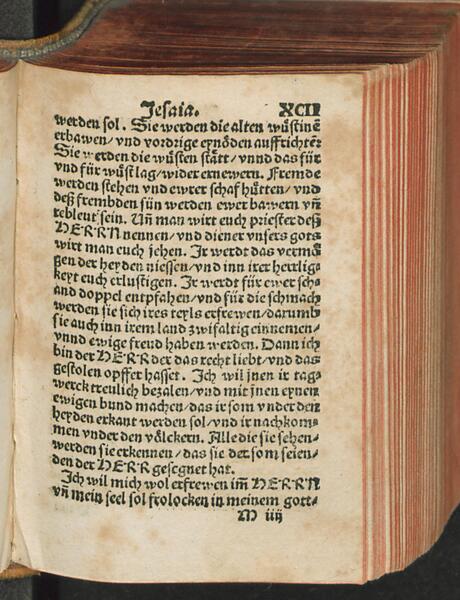 Jesaia. XCII
werden sol. Sie werden die alten wůstinē
erbawen/ vnd vordrige eynöden auffrichtē:
Sie werden die wůsten stätt/ vnnd das für
vnd für wůst lag/ wider ernewern. Fremde
werden stehen vnd ewrer schaf hůtten/ vnd
deß frembden sün werden ewer bawern vñ
rebleut sein. Uñ man wirt euch priester deß
HERRN nennen/ vnd diener vnsers gots
wirt man euch jehen. Ir werdt das vermö
gen der heyden niessen/ vnd inn irer herrlig⸗
keyt euch erlustigen. Ir werdt für ewer sch⸗
and doppel entpfahen/ vnd für die schmach
werden sie sich ires teyls erfrewen/ darumb
sie auch inn irem land zwifaltig einnemen/
vnnd ewige freud haben werden. Dann ich
bin der HERR der das recht liebt/ vnd das
gestolen opffer hasset. Ich wil jnen ir tag⸗
werck treulich bezalen/ vnd mit jnen eynen
ewigen bund machen/ das ir som vnder den
heyden erkant werden sol/ vnd ir nachkom⸗
men vnder den völckern. Alle die sie sehen⸗
werden sie erkennen/ das sie der som seien/
den der HERR gesegnet hat.
Ich wil mich wol erfrewen im̃ HERRN
vñ mein seel sol frolocken in meinem gott⸗
M iiij